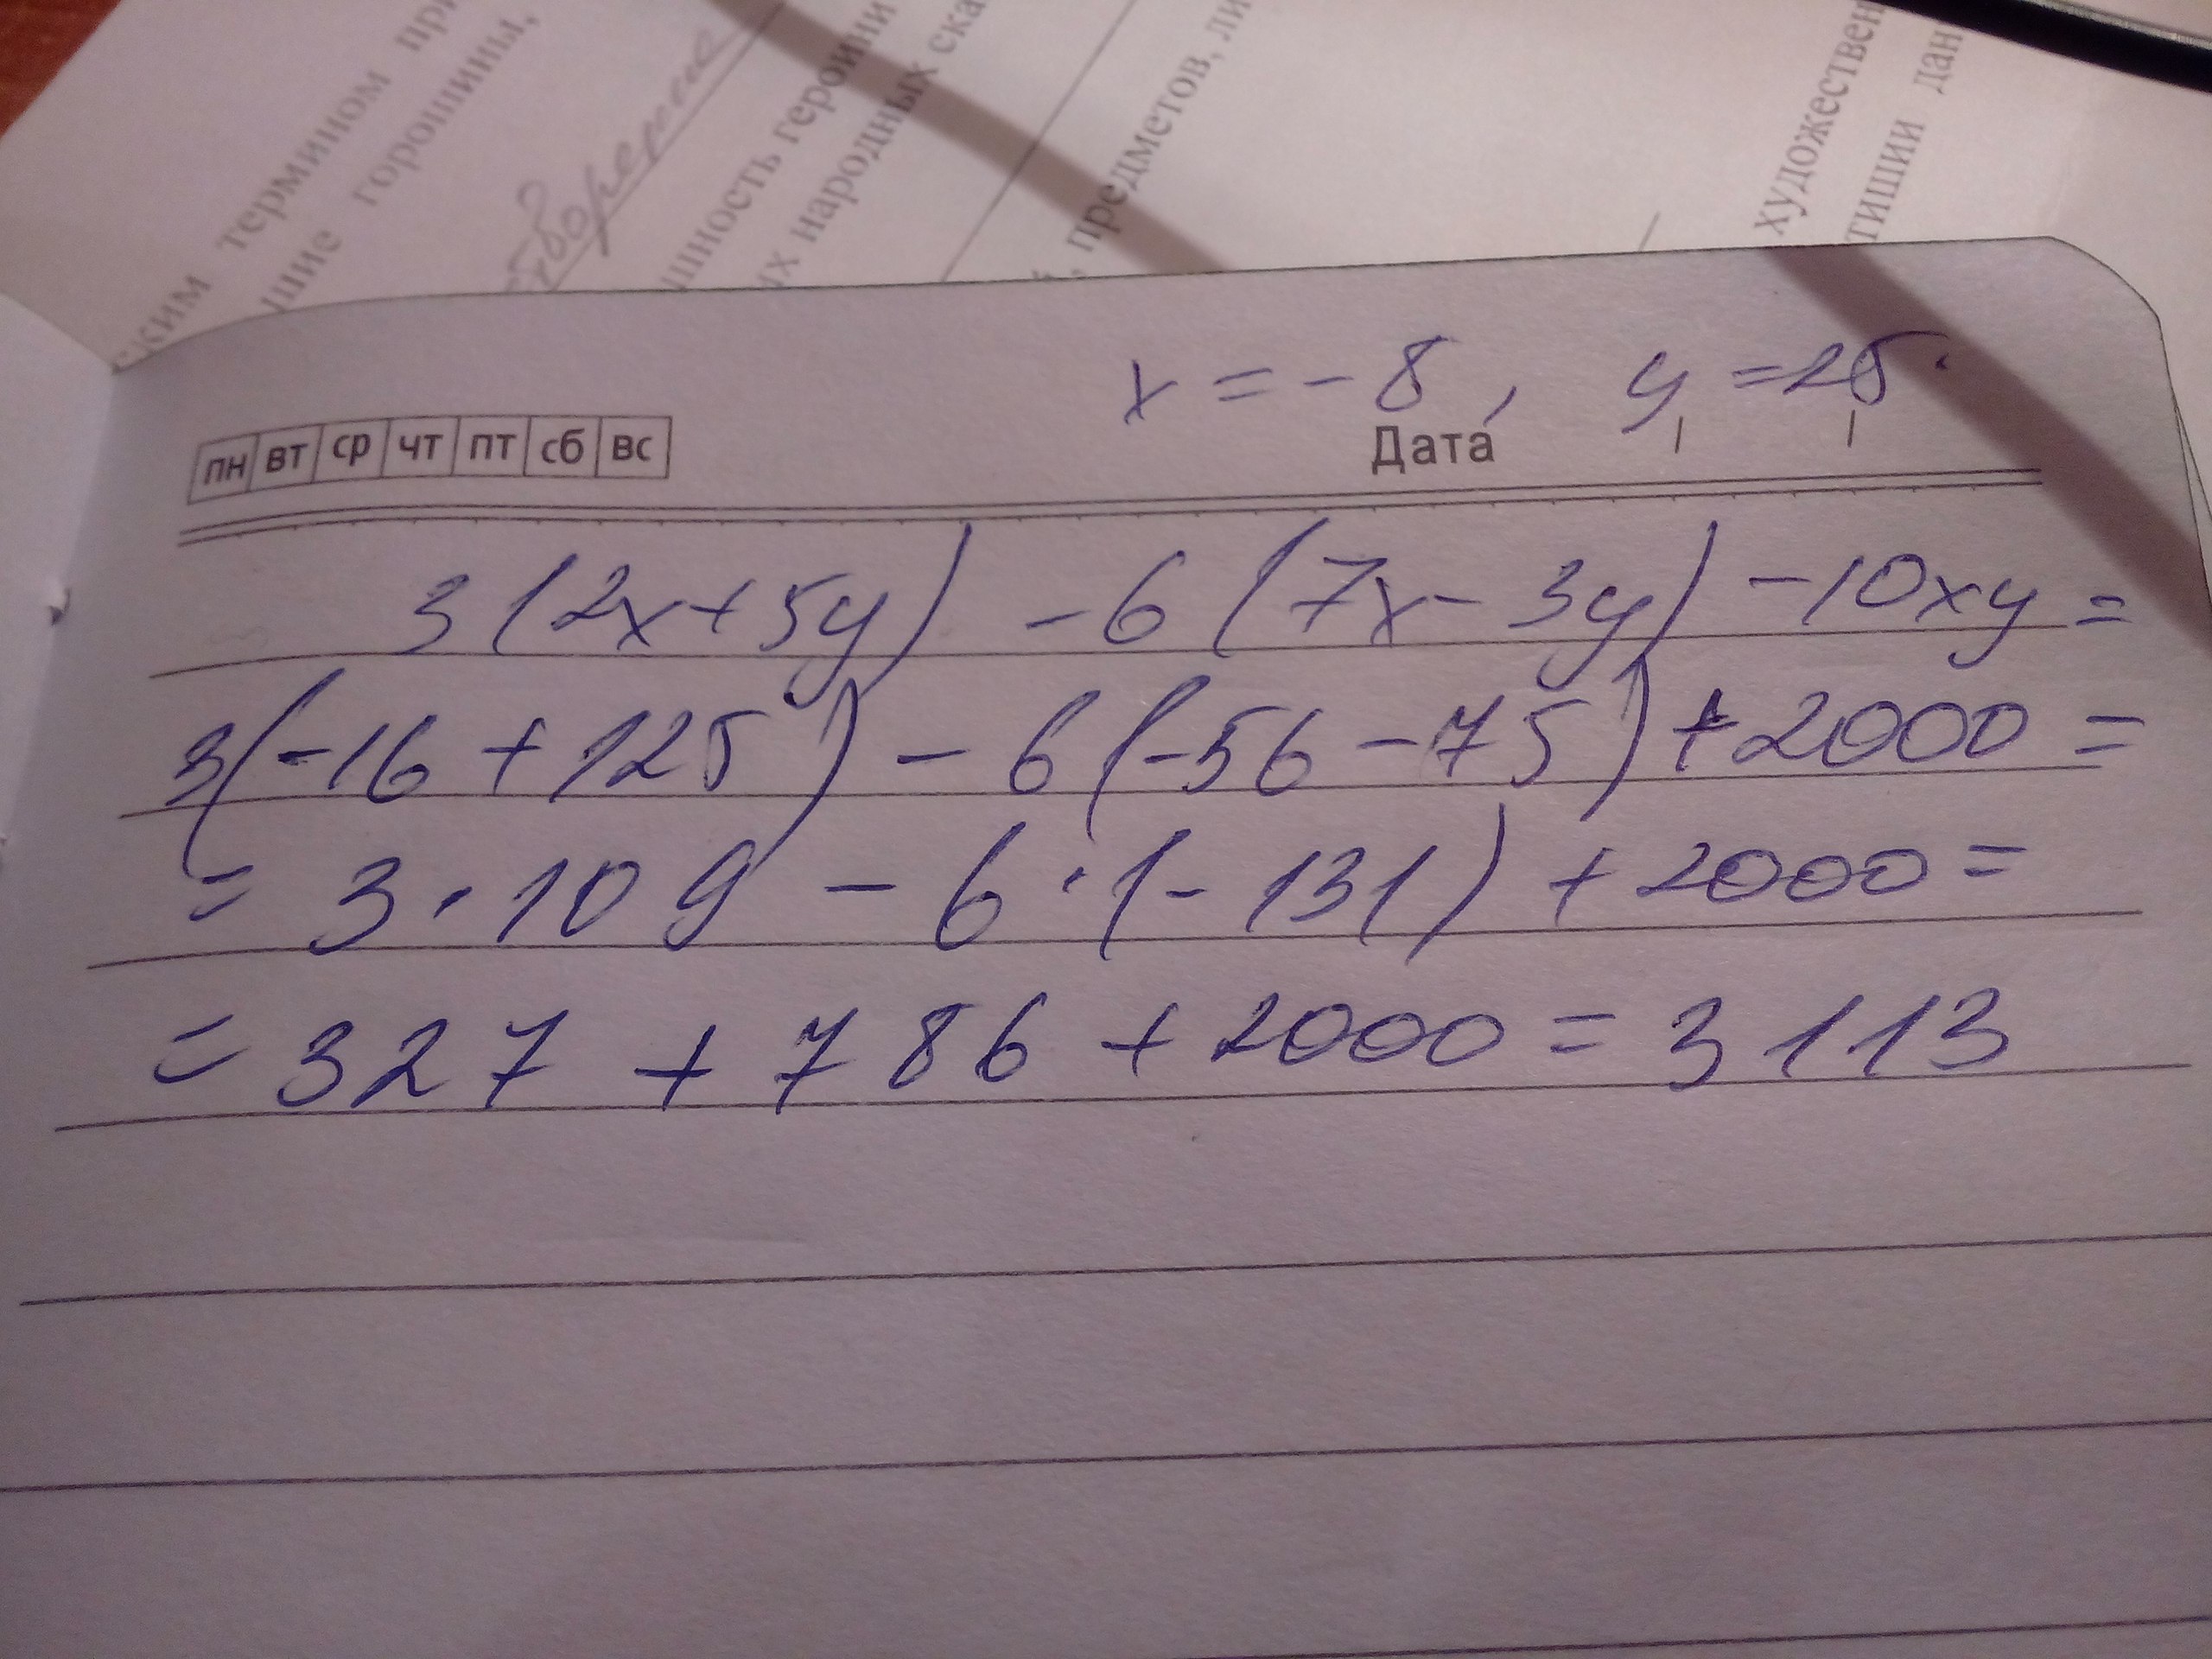 ским термином при
шние горошины,
шность героини
их народных ска
, предметов, ли
художествен
тишии дан
x = - 8, y = 25.
пн вт ср чт пт сб вс Дата
3 (2x + 5y) - 6 (7x - 3y) - 10xy =
3(-16 + 125) - 6(-56 - 75) + 2000 =
= 3 · 109 - 6 · (- 131) + 2000 =
= 327 + 786 + 2000 = 3113